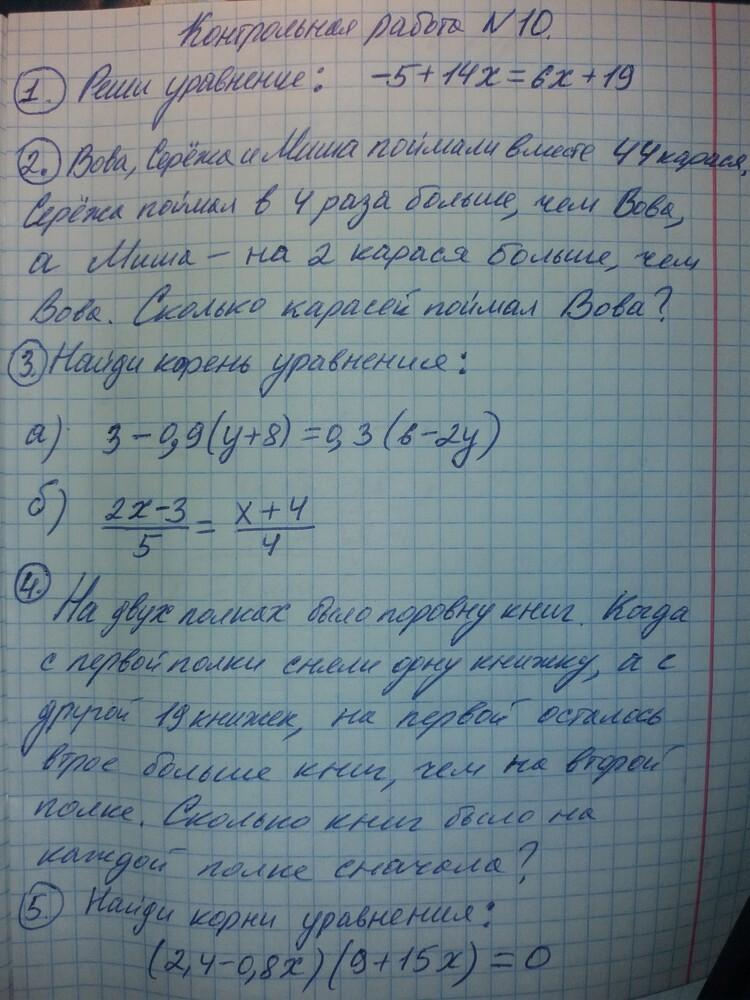 Контрольная работа N 10.
1. Реши уравнение: -5+14x=6x+19
2. Вова, Серёжа и Миша поймали вместе 44 карася,
Серёжа поймал в 4 раза больше, чем Вова,
а Миша – на 2 карася больше, чем
Вова. Сколько карасей поймал Вова?
3. Найди корень уравнения:
а) 3-0,9(y+8)=0,3(6-2y)
б) (2x-3)/5 = (x+4)/4
4.
На двух полках было поровну книг. Когда
с первой полки сняли одну книжку, а с
другой 19 книжек, на первой осталось
втрое больше книг, чем на второй
полке. Сколько книг было на
каждой полке сначала?
5. Найди корни уравнения:
(2,4-0,8x)(9+15x)=0